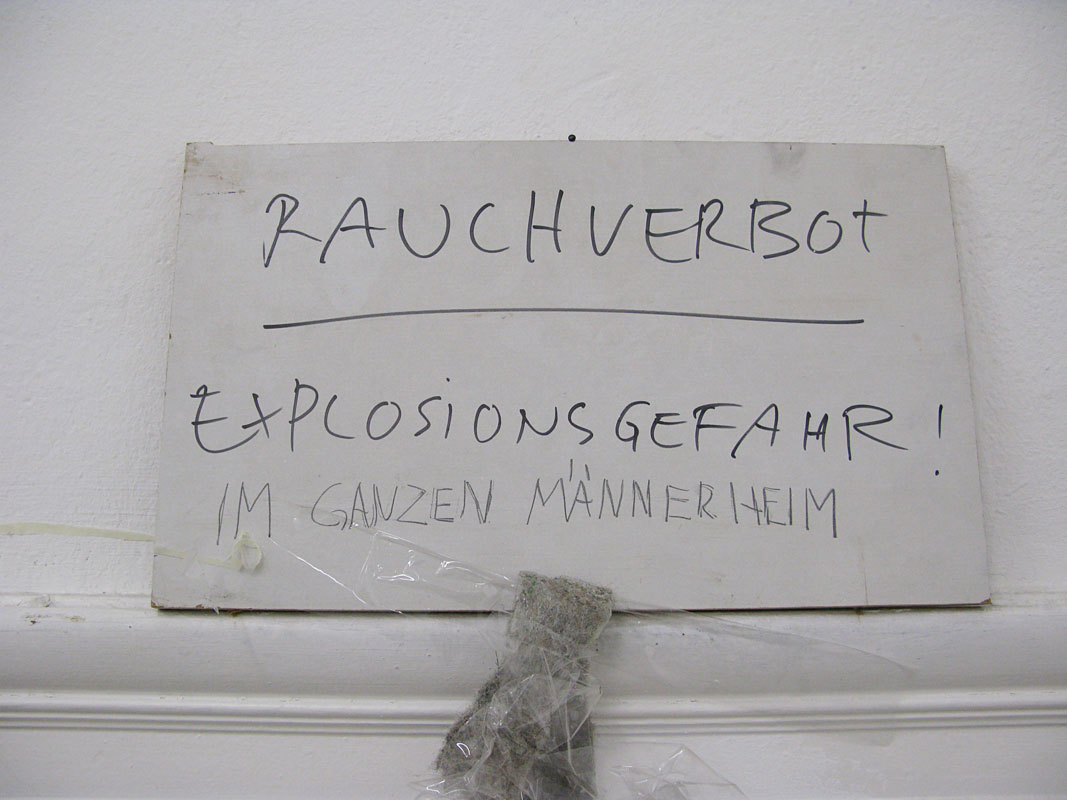 RAUCHVERBOT
EXPLOSIONSGEFAHR!
IM GANZEN MÄNNERHEIM